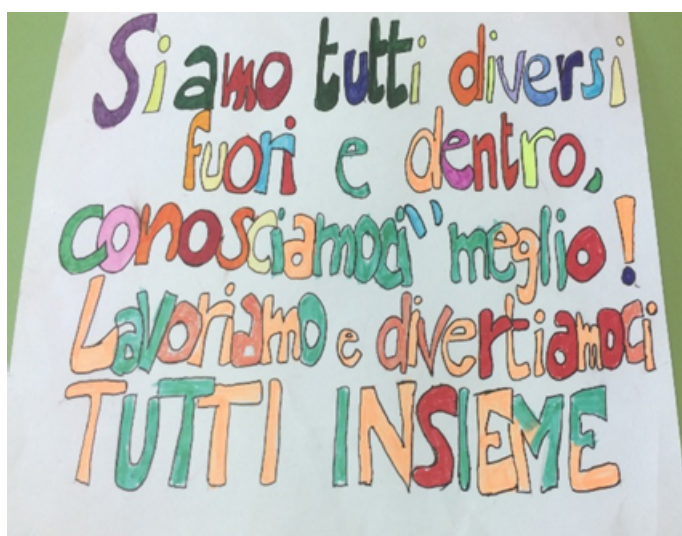 Siamo tutti diversi
fuori e dentro,
conosciamoci" meglio!
Lavoriamo e divertiamoci
TUTTI INSIEME